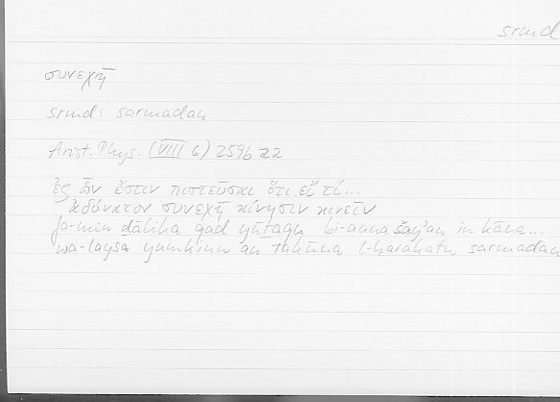 srmd
συνεχῆ
srmd: sarmadan
Arist. Phys. (VIII 6) 259b 22
ἐξ ὧν ἔστιν πιστεῦσαι ὅτι εἴ τι...
ἀδύνατον συνεχῆ κίνησιν κινεῖν
fa-min ḏālika qad yūṯaqu bi-anna šayʾan in kāna...
wa-laysa yumkinu an takūna l-ḥarakatu sarmadan